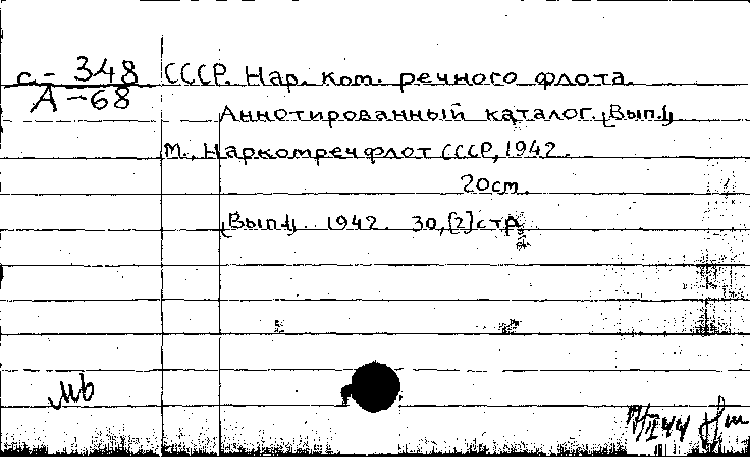 с-348
А-68
СССР. Нар. ком. речного флота.
Аннотированный каталог. [Вып.1]
М., Наркомречфлот СССР, 1942.
20см.
[Вып.1]. 1942. 30,[2]стр
Мб